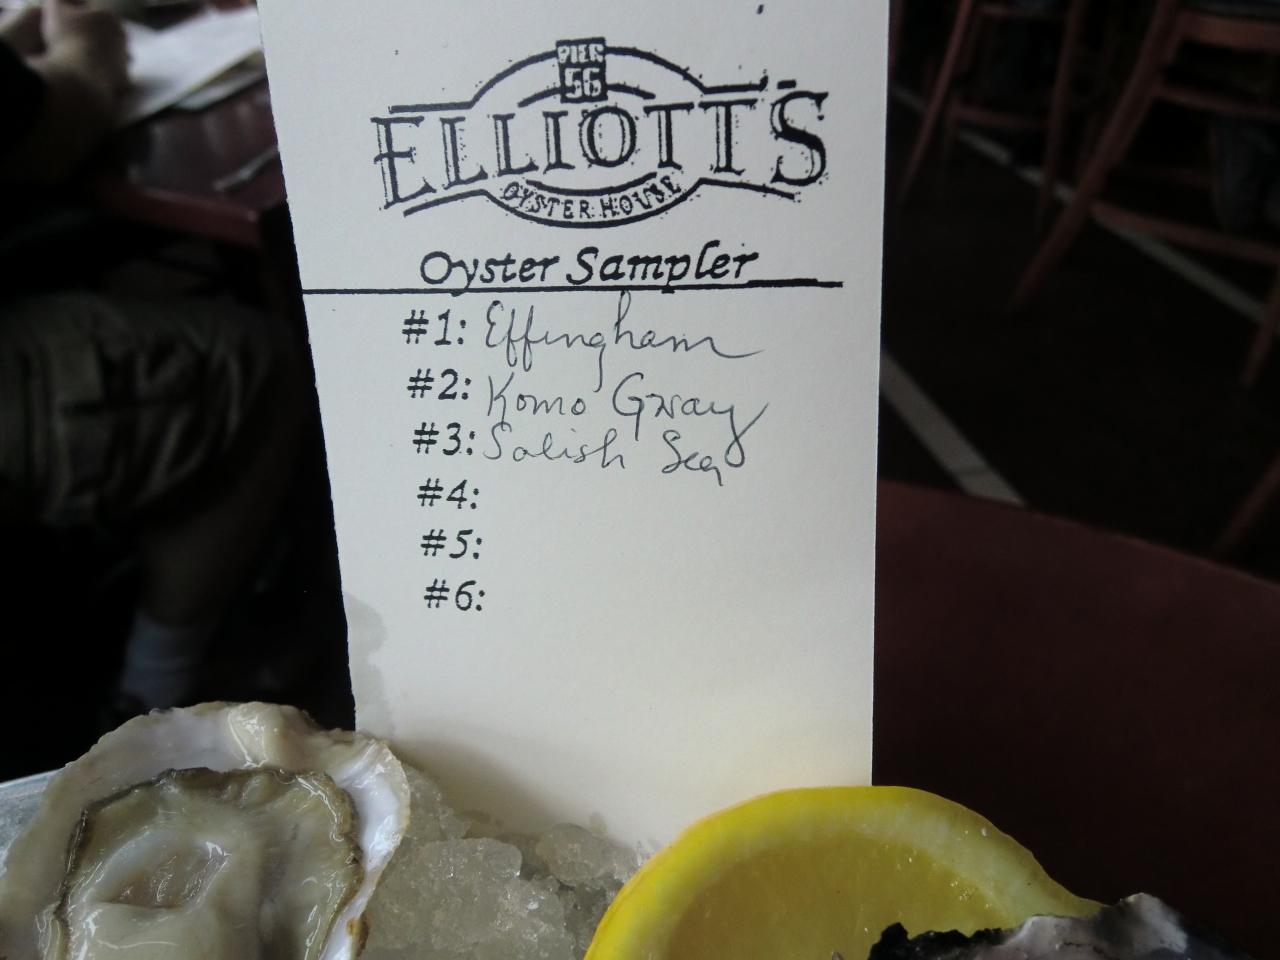 PIER
56
ELLIOTT'S
OYSTER HOUSE
Oyster Sampler
#1: Effingham
#2: Komo Gway
#3: Salish Sea
#4:
#5:
#6: